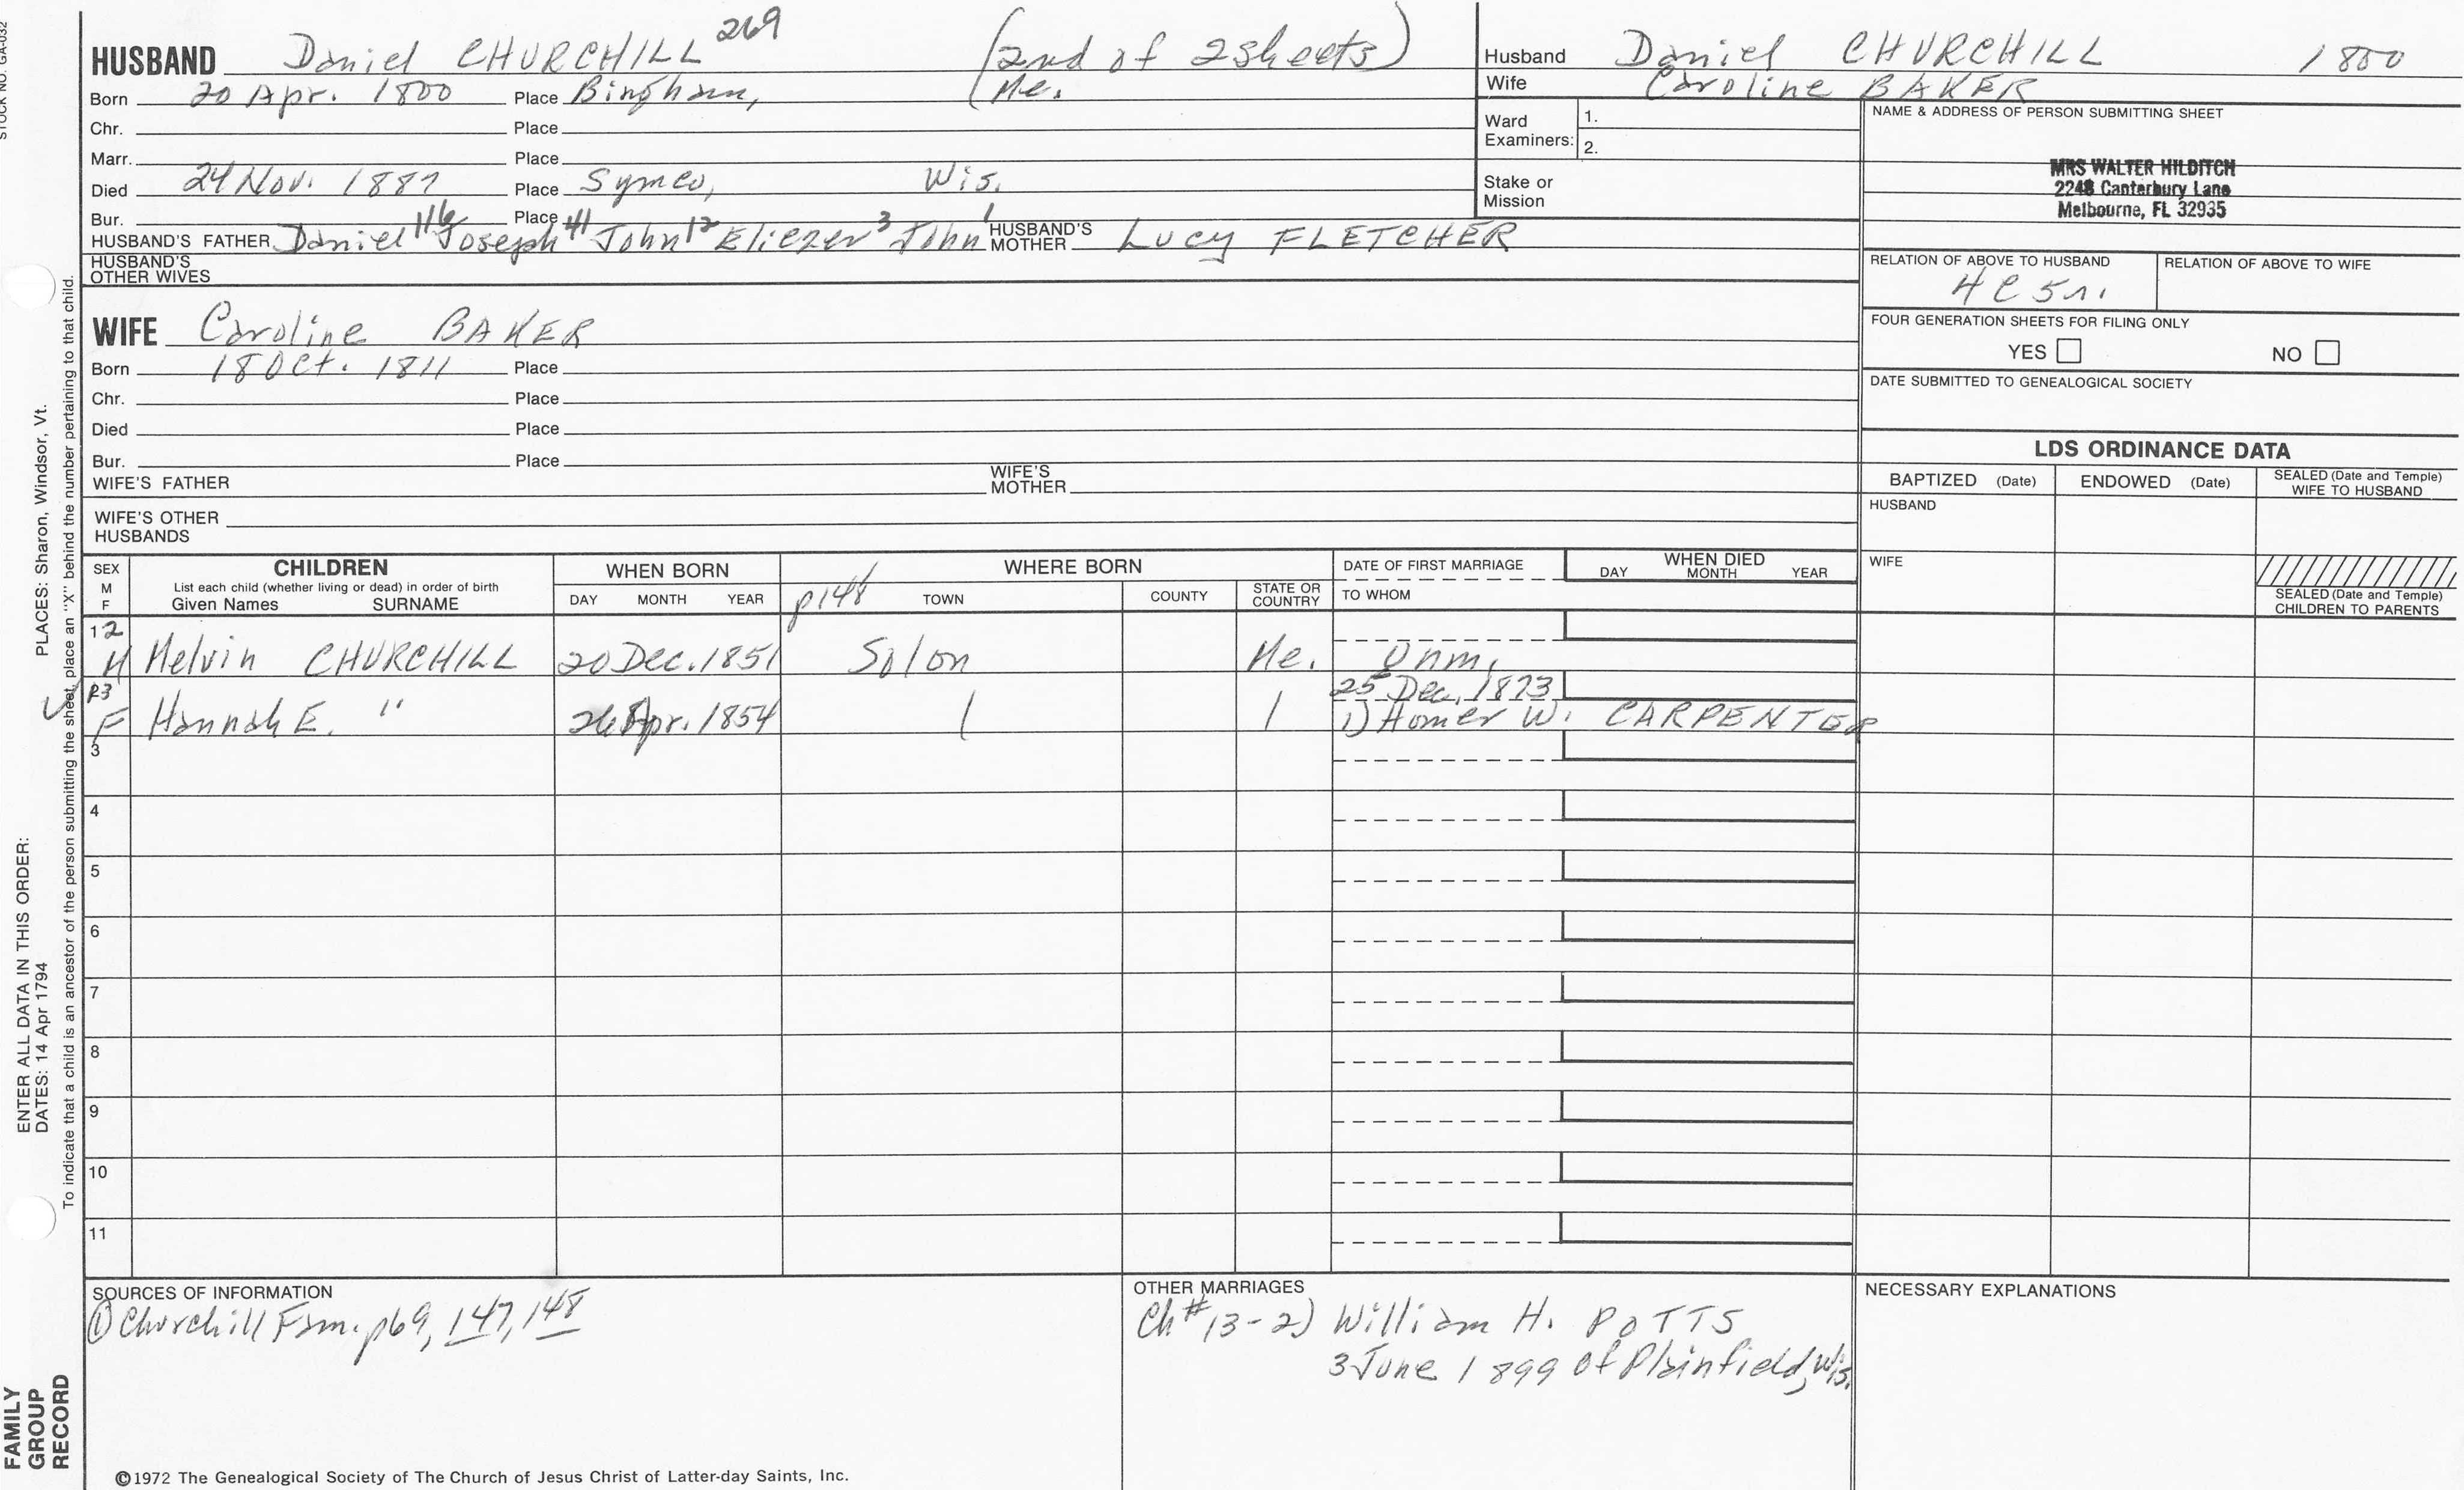 STOCK NO. GA-032
HUSBAND Daniel CHURCHILL 269 (2nd of 2 sheets)
Born 20 Apr. 1800 Place Bingham, Me.
Chr. Place
Marr. Place
Died 24 Nov. 1887 Place Symco, Wis.
Bur. Place
HUSBAND'S FATHER Daniel 116 Joseph 41 John 12 Eliezer 3 John 1 HUSBAND'S MOTHER Lucy FLETCHER
HUSBAND'S OTHER WIVES
WIFE Caroline BAKER
Born 18 Oct. 1811 Place
Chr. Place
Died Place
Bur. Place
WIFE'S FATHER WIFE'S MOTHER
WIFE'S OTHER HUSBANDS
Husband Daniel CHURCHILL 1800
Wife Caroline BAKER
Ward Examiners: 1.
2.
Stake or Mission
NAME & ADDRESS OF PERSON SUBMITTING SHEET
MRS WALTER HILDITCH
2248 Canterbury Lane
Melbourne, FL 32935
RELATION OF ABOVE TO HUSBAND RELATION OF ABOVE TO WIFE
4C5r.
FOUR GENERATION SHEETS FOR FILING ONLY
YES NO
DATE SUBMITTED TO GENEALOGICAL SOCIETY
LDS ORDINANCE DATA
BAPTIZED (Date) ENDOWED (Date) SEALED (Date and Temple) WIFE TO HUSBAND
HUSBAND
WIFE
SEALED (Date and Temple) CHILDREN TO PARENTS
SEX M F CHILDREN WHEN BORN WHERE BORN DATE OF FIRST MARRIAGE WHEN DIED
List each child (whether living or dead) in order of birth
Given Names SURNAME DAY MONTH YEAR p148 TOWN COUNTY STATE OR COUNTRY TO WHOM DAY MONTH YEAR
12
M Melvin CHURCHILL 20 Dec. 1851 Solon Me. Unm.
13 25 Dec. 1873
F Hannah E. " 26 Apr. 1854 1) Homer W. CARPENTER
3
4
5
6
7
8
9
10
11
SOURCES OF INFORMATION
① Churchill Fam. p69, 147, 148
OTHER MARRIAGES
Ch # 13-2) William H. POTTS
3 June 1899 of Plainfield, Wis.
NECESSARY EXPLANATIONS
©1972 The Genealogical Society of The Church of Jesus Christ of Latter-day Saints, Inc.
FAMILY GROUP RECORD
ENTER ALL DATA IN THIS ORDER:
DATES: 14 Apr 1794 PLACES: Sharon, Windsor, Vt.
To indicate that a child is an ancestor of the person submitting the sheet, place an "X" behind the number pertaining to that child.